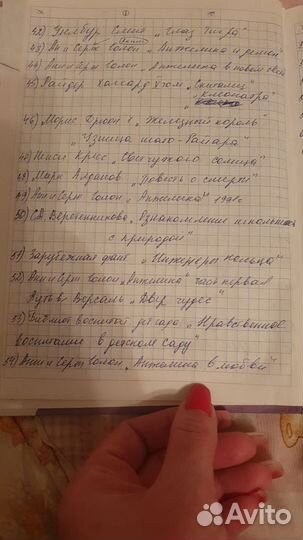 42) Уилбур Смит „Глаз тигра"
43) Анн и Серж Голон „Анжелика и демон"
44) Анн и Серж Голон „Анжелика в новом свете
45) Райдер Хаггард Том „Скиталец
„Клеопатра"
46) Морис Дрюон „Железный король"
„Узница Шато-Гайара"
47) Нэнси Кресс „чужого солнца"
48) Марк Алданов „Повесть о смерти"
49) Анн и Серж Голон „Анжелика" 1991г.
50) С.А. Веретенникова „Ознакомление дошкольника
с природой"
51) Зарубежная фант. „Инженеры кольца"
52) Анн и Серж Голон „Анжелика" часть первая
Путь в Версаль „Двор чудес"
53) Библиот. воспитат. дет сада „Нравственное
воспитание в детском саду"
54) Анн и Серж Голон „Анжелика в любви"
Avito